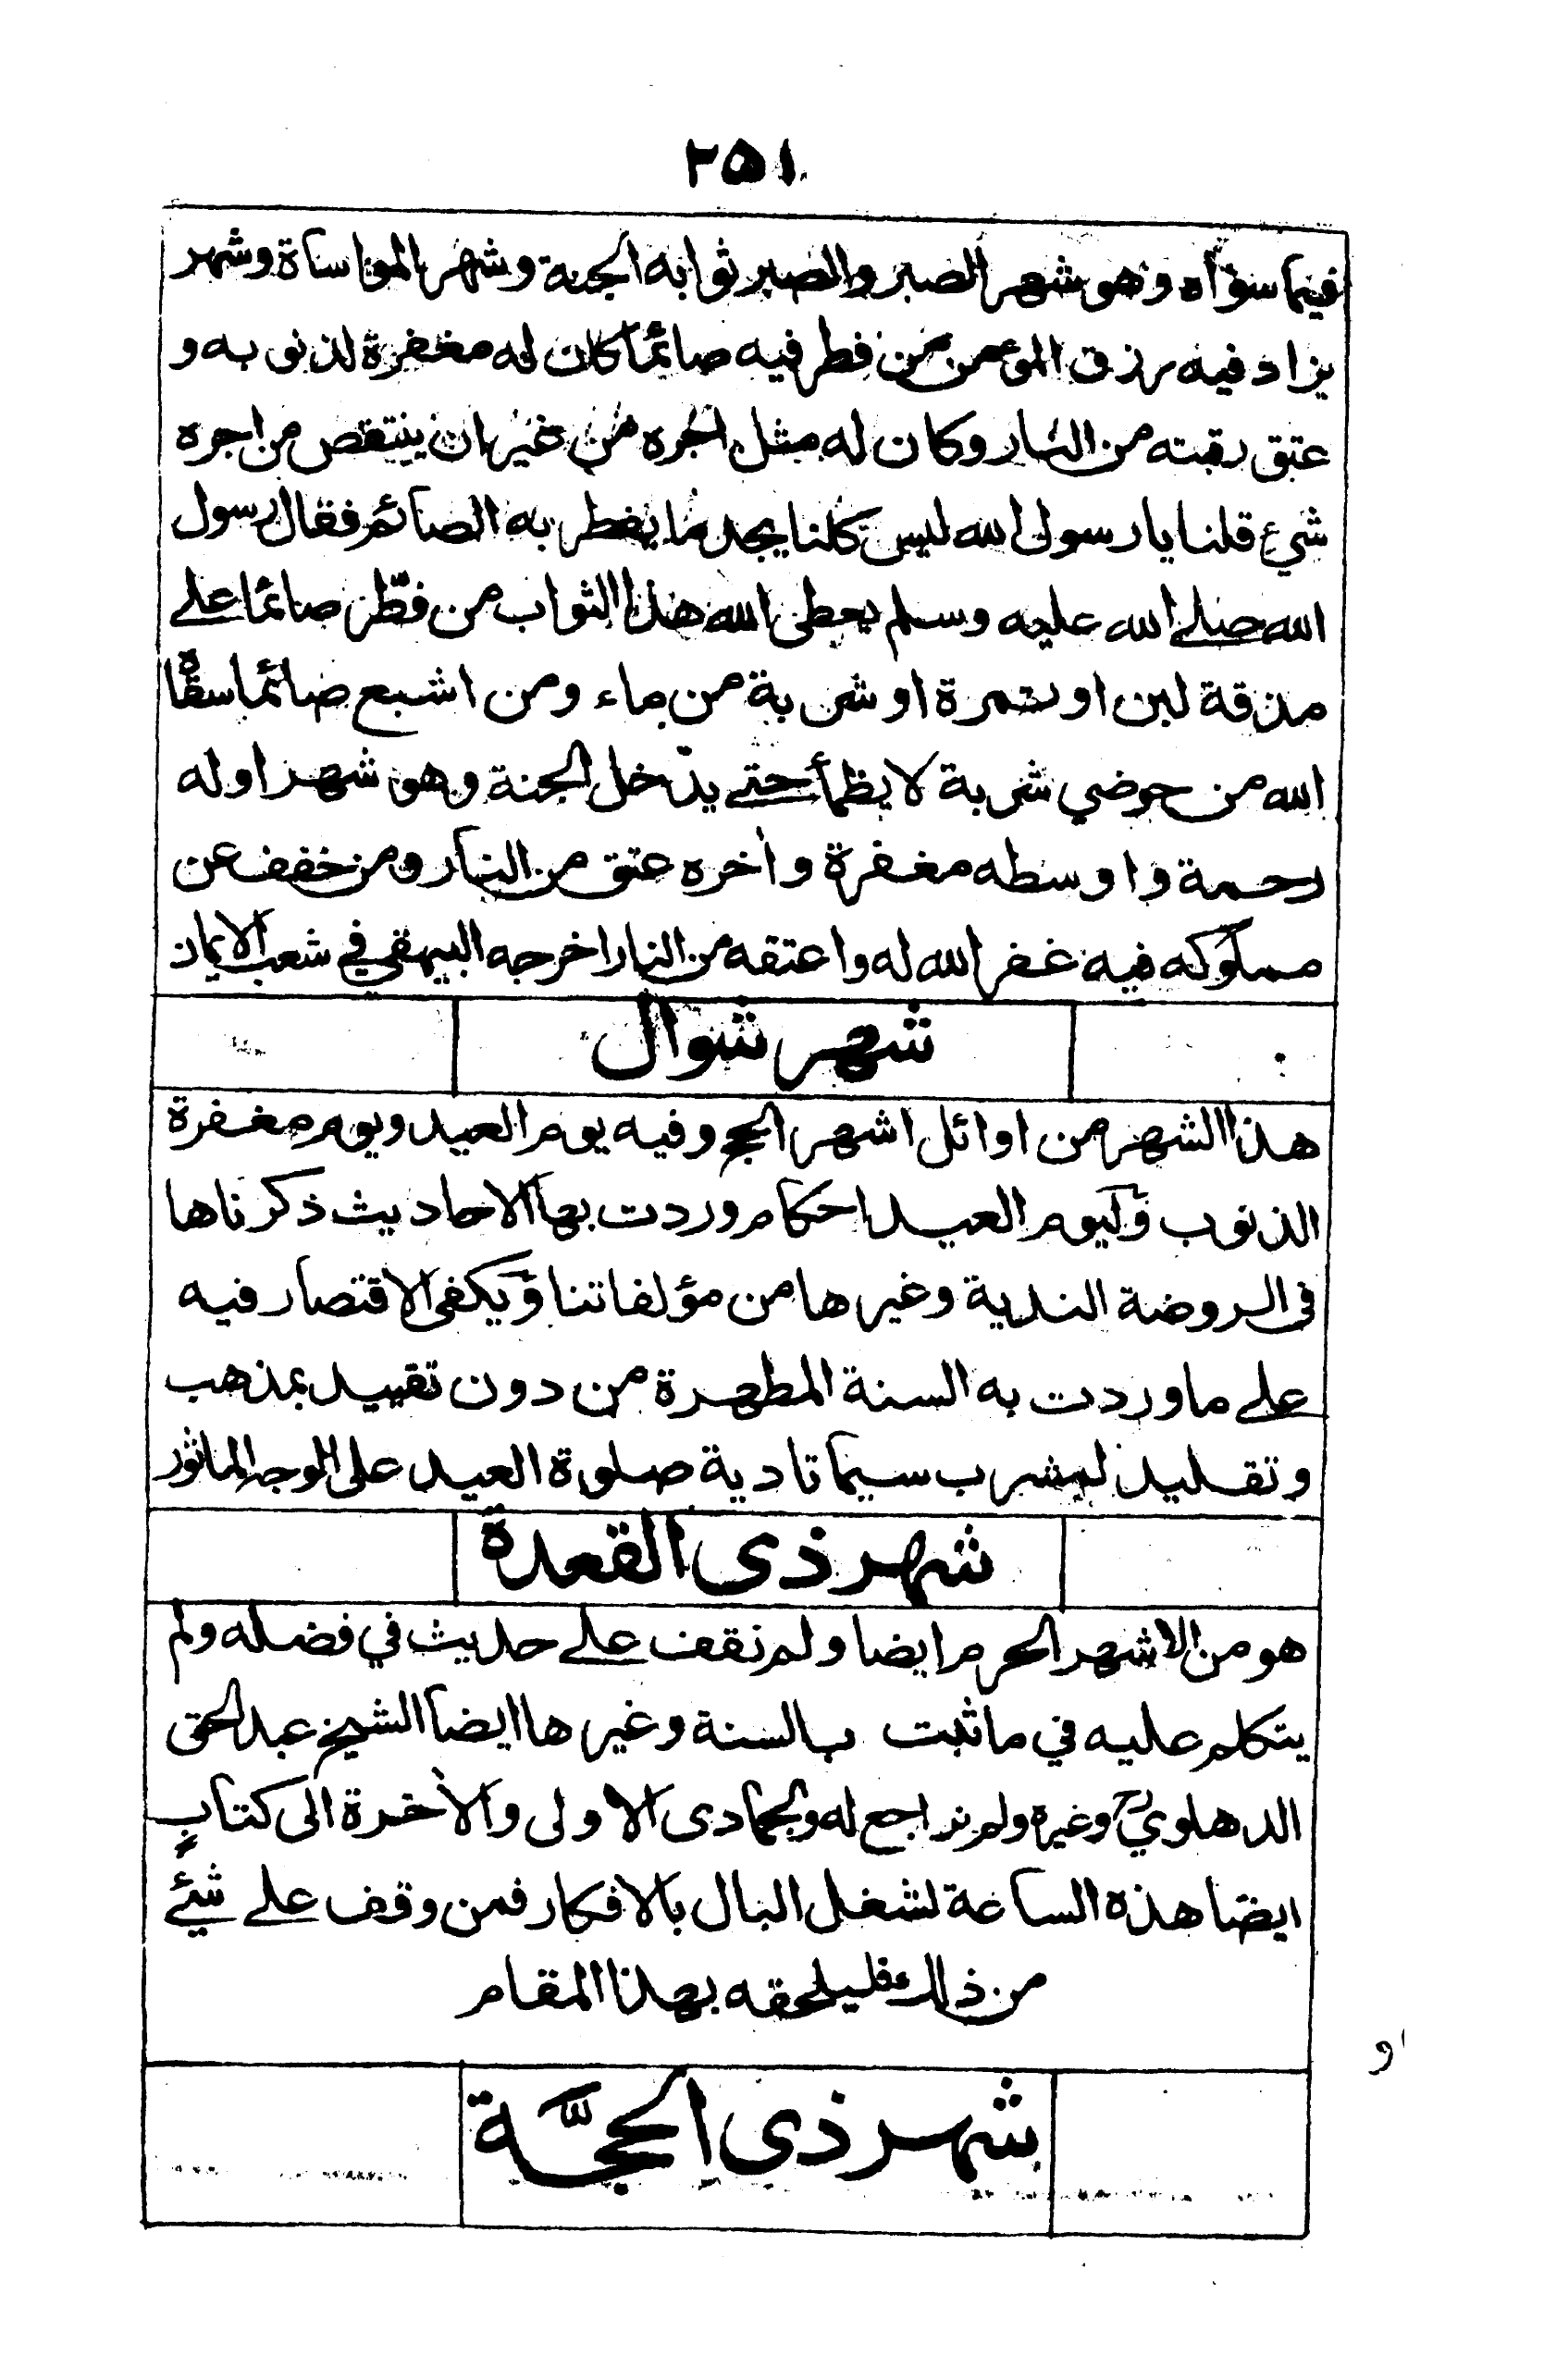 ٢٥١
فيما سواه وهو شهر الصبر والصبر ثوابه الجنة وشهر المواساة وشهر
يزاد فيه رزق المؤمن من فطر فيه صائما كان له مغفرة لذنوبه و
عتق رقبته من النار وكان له مثل اجره من غير ان ينتقص من اجره
شيء قلنا يا رسول الله ليس كلنا يجد ما يفطر به الصائم فقال رسول
الله صلے الله عليه وسلم يعطى الله هذا الثواب من فطّر صائما علے
مذقة لبن او تمرة او شربة من ماء ومن اشبع صائما سقاه
الله من حوضي شربة لا يظمأ حتے يدخل الجنة وهو شهر اوله
رحمة واوسطه مغفرة وأخره عتق من النار ومن خفف عن
مملوكه فيه غفر الله له واعتقه من النار اخرجه البيهقي في شعب الايمان
شهر شوال
هذا الشهر من اوائل اشهر الحج وفيه يوم العيد ويوم مغفرة
الذنوب وليوم العيد احكام وردت بها الاحاديث ذكرناها
فى الروضة الندية وغيرها من مؤلفاتنا ويكفى الاقتصار فيه
علے ما وردت به السنة المطهرة من دون تقييد بمذهب
وتقليد لمشرب سيما تادية صلوة العيد على الوجه الماثور
شهر ذى القعدة
هو من الاشهر الحرم ايضا ولم نقف علے حديث في فضله ولم
يتكلم عليه في ما ثبت بالسنة وغيرها ايضا الشيخ عبد الحق
الدهلوي وغيره ولم نراجع له ولجمادى الاولى والأخرة الى كتابٍ
ايضا هذه الساعة لشغل البال بالافكار فمن وقف علے شيئے
من ذالك فليلحقه بهذا المقام
شهر ذى الحجَّة